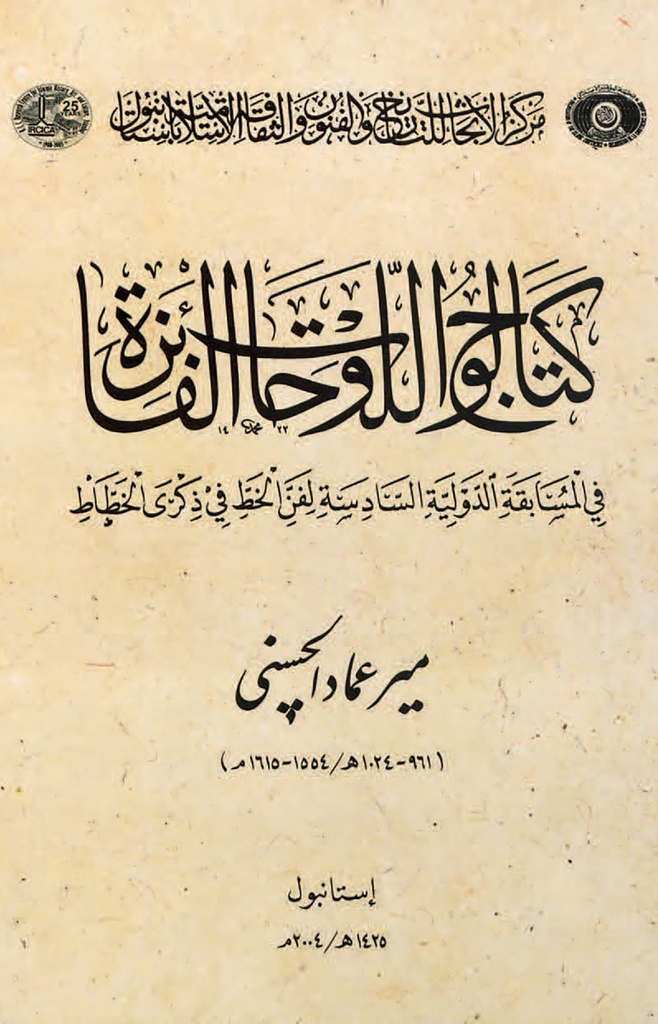 مركز الأبحاث للتاريخ والفنون والثقافة الإسلامية باستانبول
IRCICA
25
YEARS
كتاب اللوحات الفائزة
١٤ محمد ٢٣
في الْمُسَابَقَةِ الدَّوْلِيَّةِ السَّادِسَةِ لِفَنِّ الْخَطِّ فِي ذِكْرَى الْخَطَّاطِ
مير عماد الحسني
(٩٦١-١٠٢٤هـ/١٥٥٤-١٦١٥م)
إستانبول
١٤٢٥هـ/٢٠٠٤م